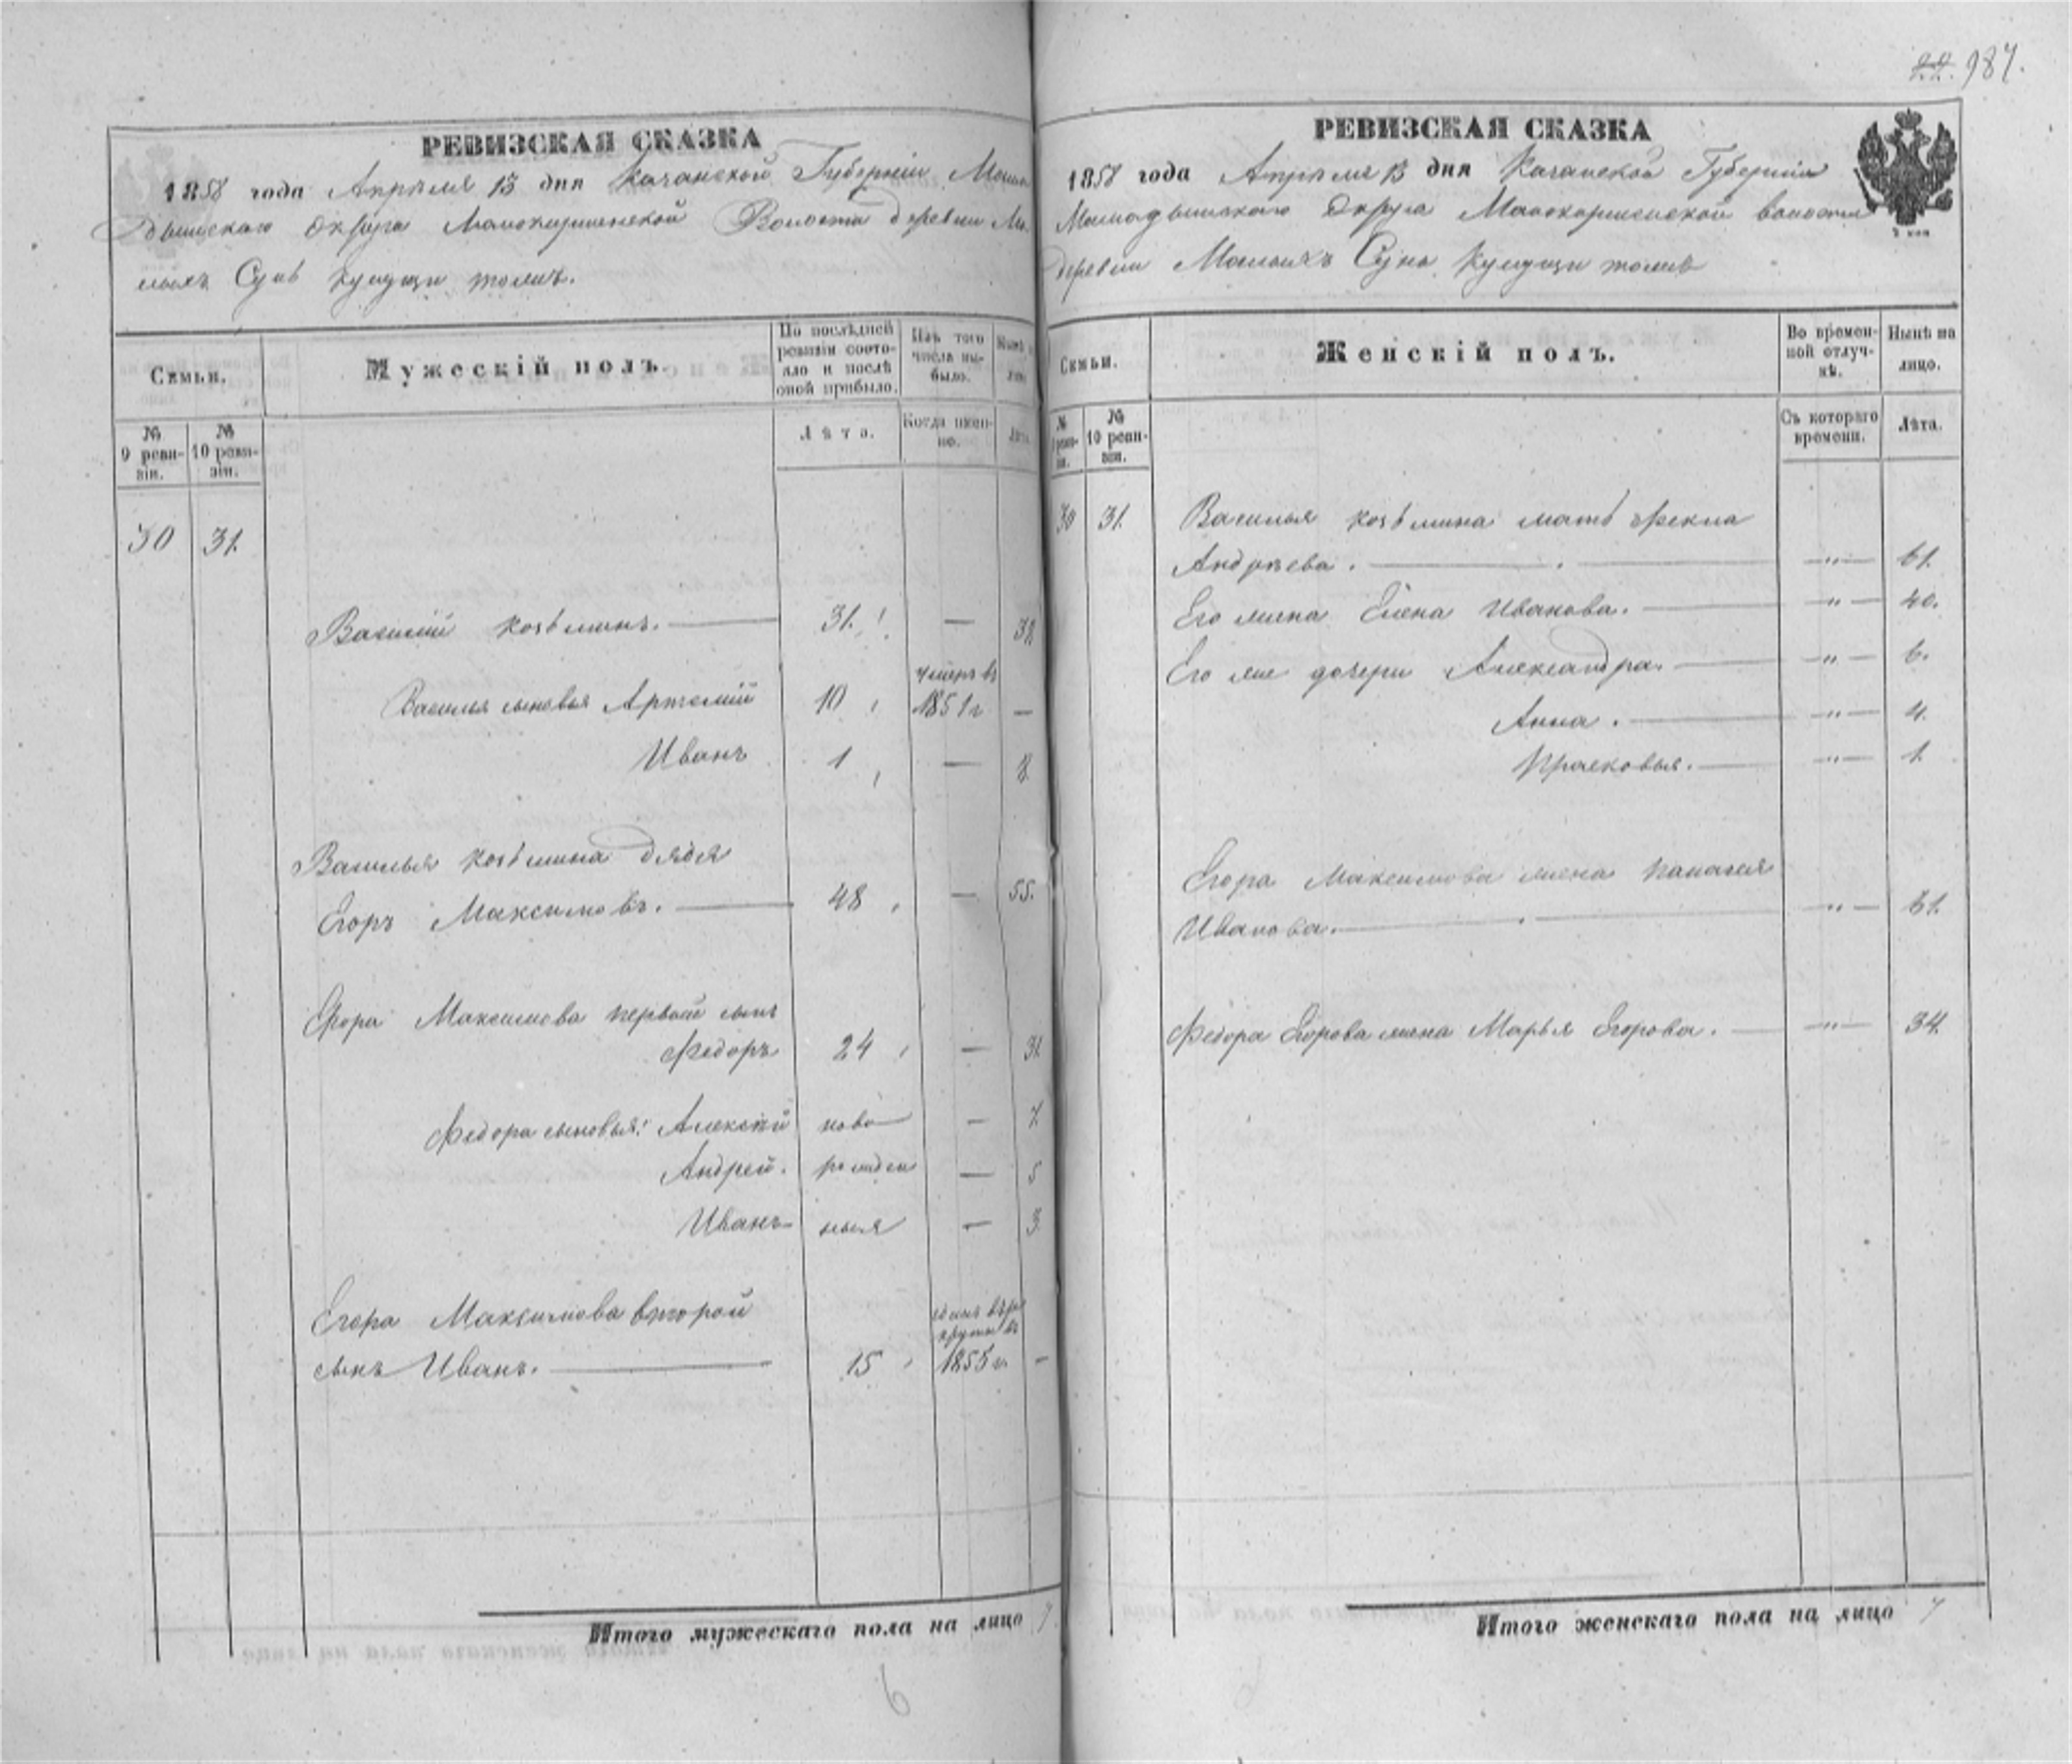 987.
РЕВИЗСКАЯ СКАЗКА
1858 года Апрѣля 13 дня Казанской Губерніи Мама
дышскаго Округа Малокирменской Волости деревни Ма-
лыхъ Сунь
Семьи.
Мужескій полъ.
По послѣдней ревизіи состояло и послѣ оной прибыло.
Изъ того числа выбыло.
Нынѣ
№ 9 ревизіи.
№ 10 ревизіи.
Лѣта.
Когда именно.
Лѣта
30 31.
Василій Козьминъ. 31. — 38
Василья сыновья Артемій 10 умеръ въ 1851 г —
Иванъ 1 — 8
Василья Козьмина дядя
Егоръ Максимовъ. 48 — 55.
Егора Максимова первой сынъ
Федоръ 24 — 31
Федора сыновья: Алексѣй ново — 7
Андрей. рожден — 5
Иванъ ныя — 3
Егора Максимова второй
сынъ Иванъ. 15 1855 г. —
Итого мужескаго пола на лицо 7
6
РЕВИЗСКАЯ СКАЗКА
1858 года Апрѣля 13 дня Казанской Губерніи
Мамадышскаго Округа Малокирменской волости
деревни Малыхъ Сунь
2 коп
Семьи.
Женскій полъ.
Во временной отлучкѣ.
Нынѣ на лицо.
№ 9 ревизіи.
№ 10 ревизіи.
Съ котораго времени.
Лѣта.
30 31.
Василья Козьмина мать Фекла
Андрѣева. — " — 61.
Его жена Елена Иванова. — " — 40.
Его же дочери Александра. — " — 6.
Анна. — " — 4.
Прасковья. — " — 1.
Егора Максимова жена Палагея
Иванова. — " — 61.
Федора Егорова жена Марья Егорова. — " — 34.
Итого женскаго пола на лицо 7